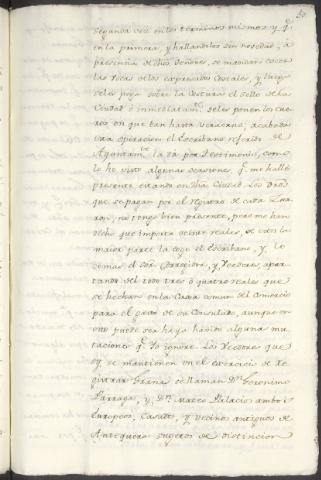 segunda vez en los terminos mismos y qe.
en la primera, y hallandolos sin novedad, à
presencia de dhos Señores, se mandan coser
las vocas de los expresados costales, y luego
se les pega sobre la costura el sello de la
Ciudad è inmediatamte. se les ponen los cue-
ros en que van hasta Veracruz; acabada
esta operacion el Escribano referido de
Ayuntamto. la dà por testimonio, como
lo he visto algunas ocasiones qe. me hallè
presente estando en dha Ciudad. Los Dros
que se pagan por el registro de cada Zur-
ron, no tengo bien presente, pero me han
dicho que importa veinte reales, de estos la
maior parte la coge el Escribano, y lo
demas el Sor. Corregidor, y Veedores, apar-
tando del todo tres ò quatro reales que
se hechan en la Caxa comun del Comercio
para el gasto de su Consulado, aunque en
esto puede ser haya havido alguna mu-
tacion qe. Yo ignore. Los Veedores que
oy se mantienen en el exercicio de re-
gistrar Grana se llaman Dn. Geronimo
Parraga, y Dn. Mateo Palacios ambos
Europeos, Casados, y Vecinos antiguos de
Antequera sugetos de distincion